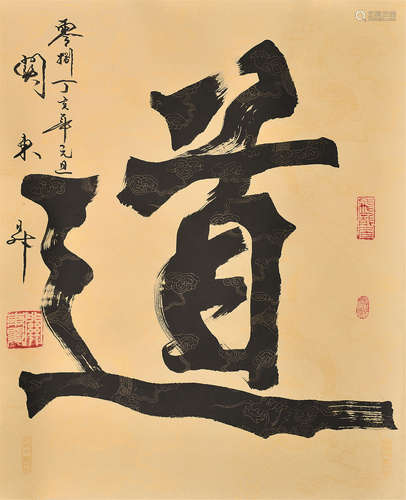 道
零捌丁亥年元旦
關東升